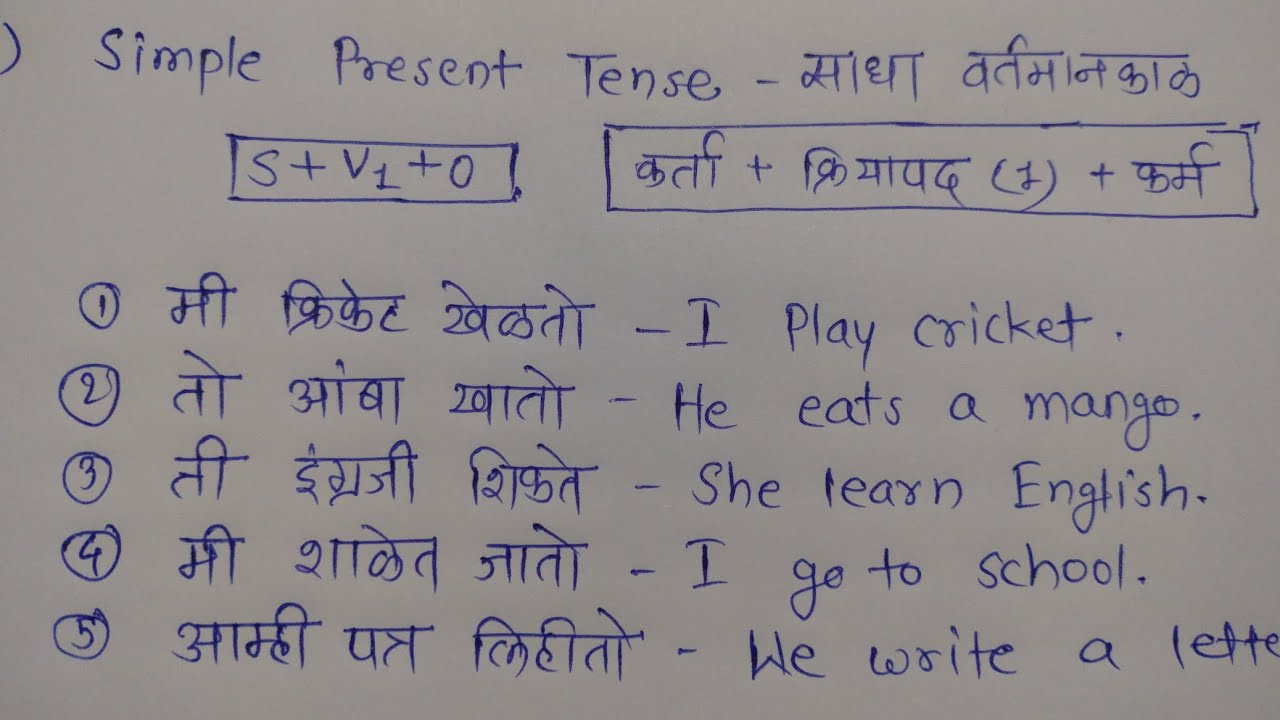 ) Simple Present Tense - साधा वर्तमानकाळ
S + V1 + O कर्ता + क्रियापद (1) + कर्म
① मी क्रिकेट खेळतो - I Play cricket.
② तो आंबा खातो - He eats a mango.
③ ती इंग्रजी शिकते - She learn English.
④ मी शाळेत जातो - I go to school.
⑤ आम्ही पत्र लिहीतो - We write a lette